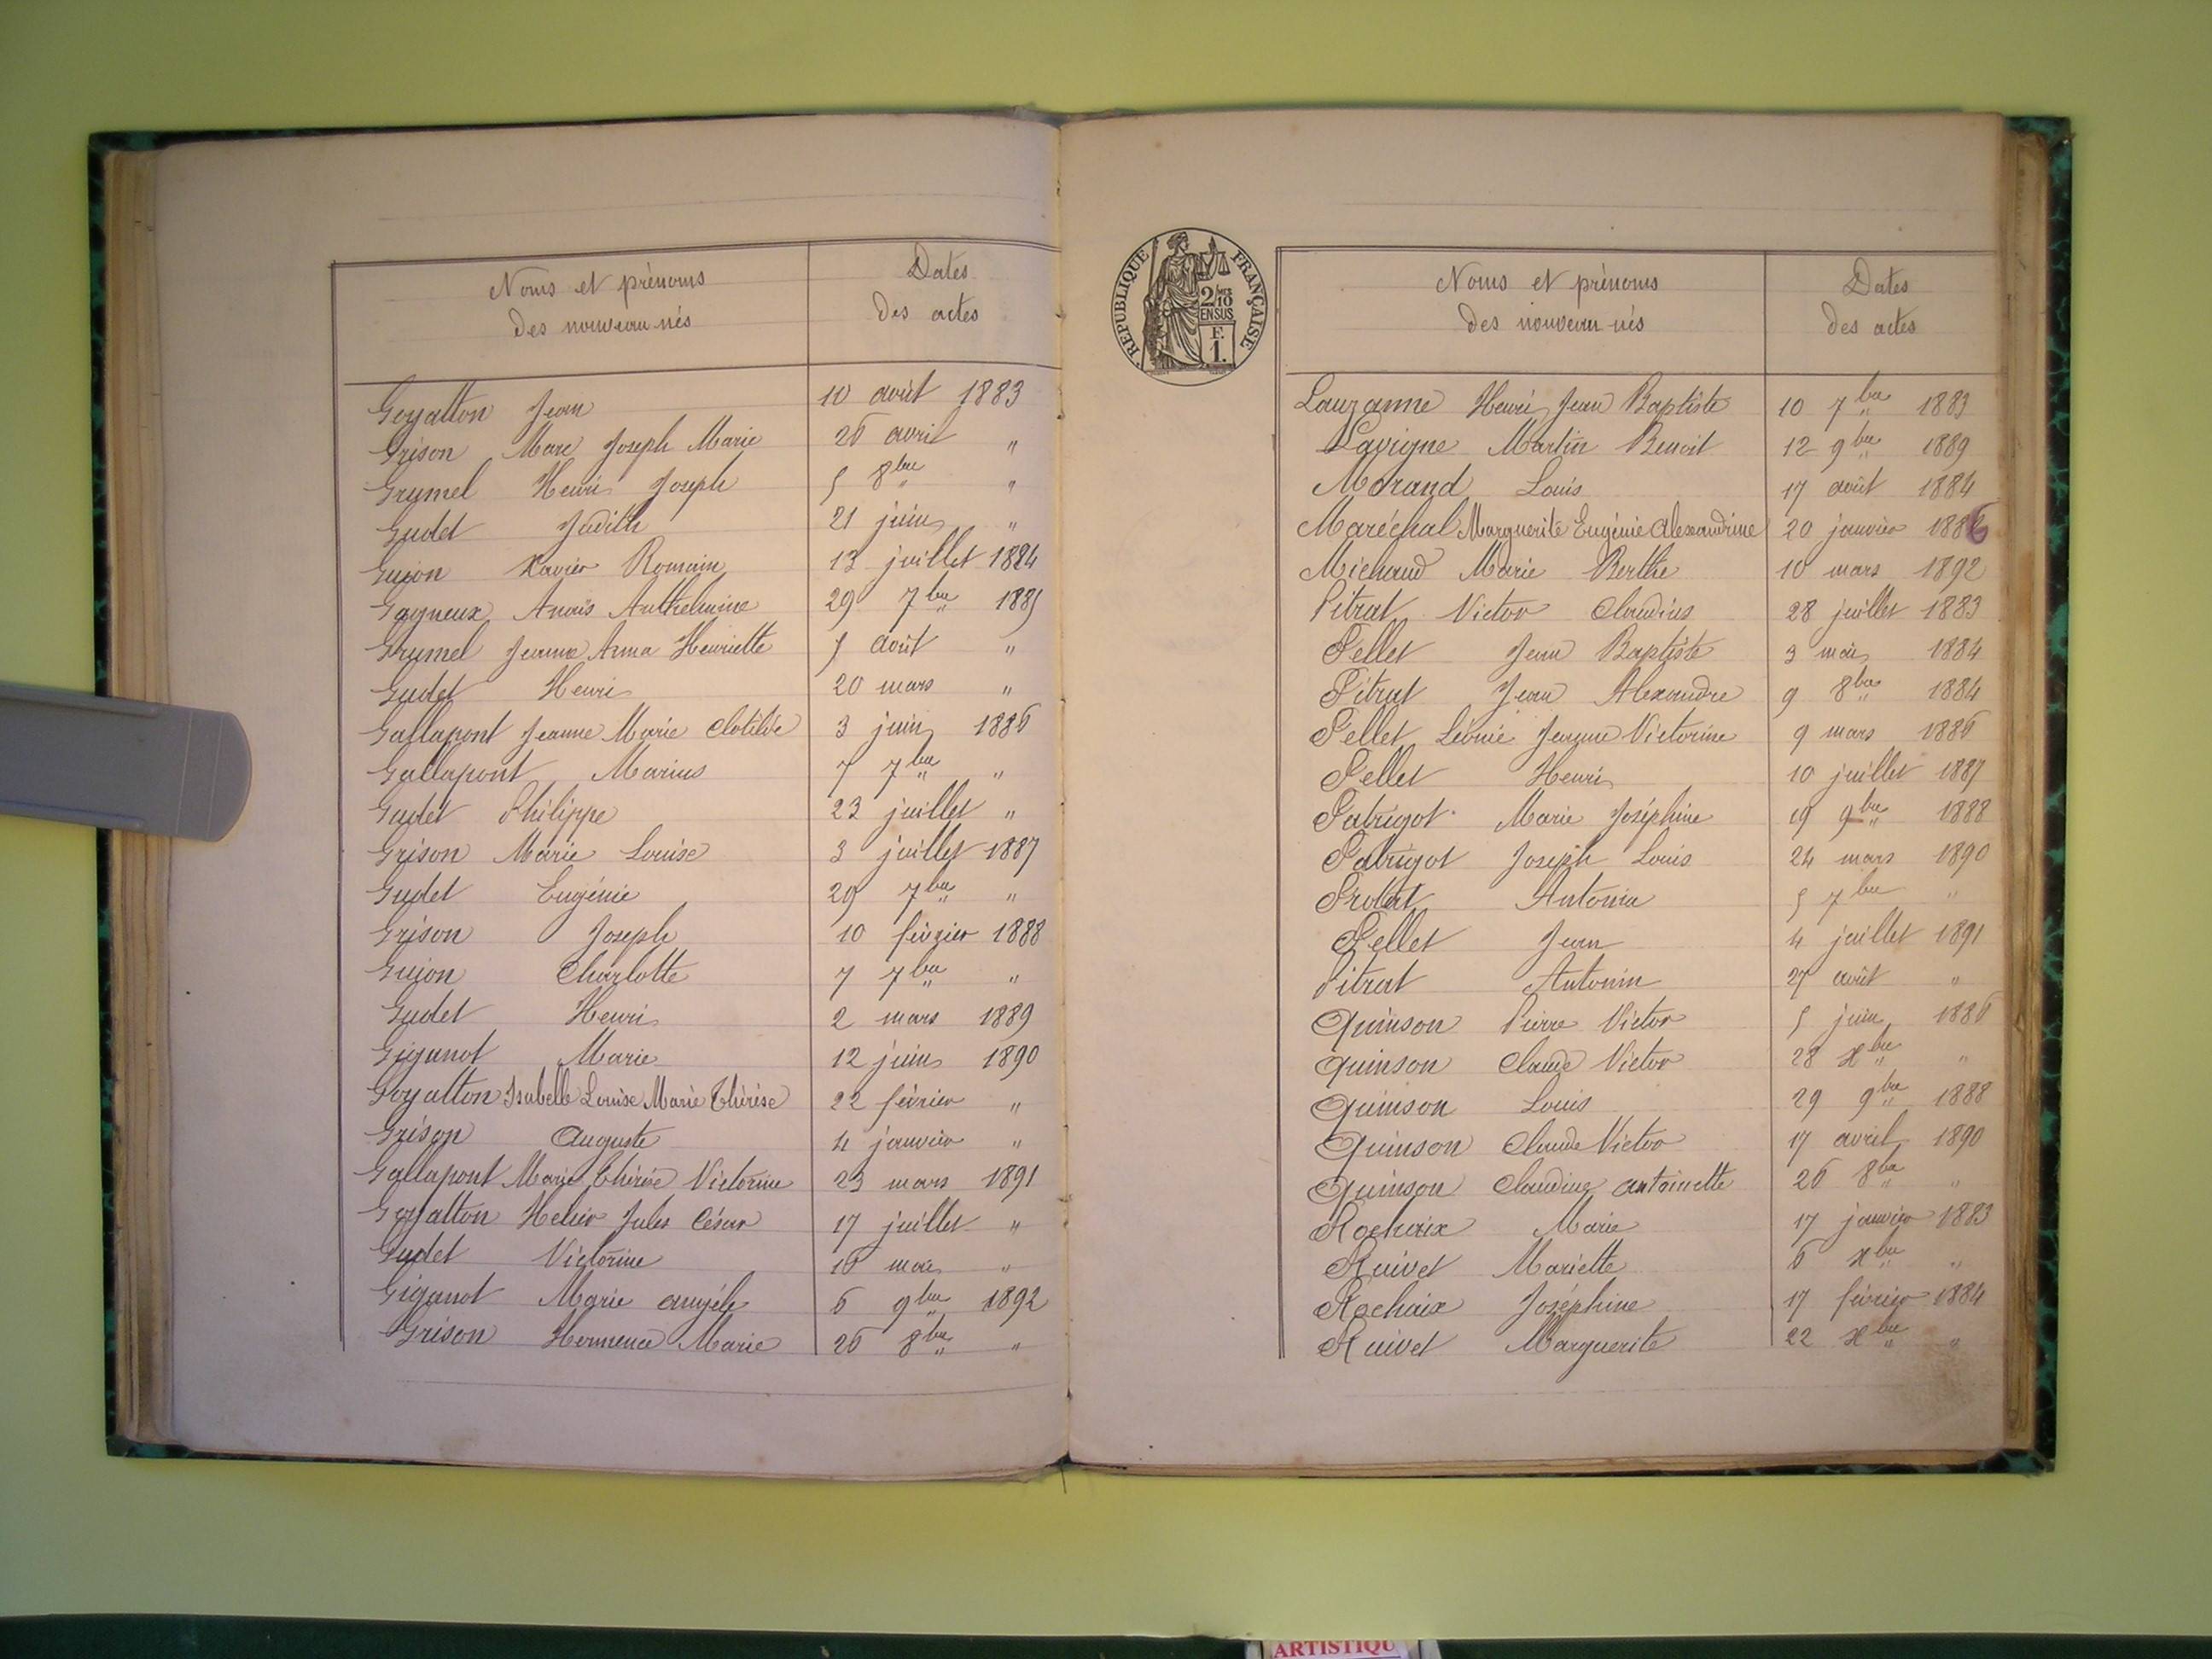 Noms et prénoms
des nouveau nés
Dates
des actes
Goyatton Jean 10 août 1883
Grison Marc Joseph Marie 26 avril "
Grumel Henri Joseph 5 8bre "
Gudet Judith 21 juin "
Gujon Xavier Romain 13 juillet 1884
Gagneux Anaïs Anthelmine 29 7bre 1885
Grumel Jeanne Anna Henriette 5 août "
Gudet Henri 20 mars "
Gallapont Jeanne Marie Clotilde 3 juin 1886
Gallapont Marius 7 7bre "
Gudet Philippe 23 juillet "
Grison Marie Louise 3 juillet 1887
Gudet Eugénie 29 7bre "
Grison Joseph 10 février 1888
Gujon Charlotte 7 7bre "
Gudet Henri 2 mars 1889
Giganot Marie 12 juin 1890
Goyatton Isabelle Louise Marie Thérèse 22 février "
Grison Auguste 4 janvier "
Gallapont Marie Thérèse Victorine 23 mars 1891
Goyatton Jules César 17 juillet "
Gudet Victorine 16 mai "
Giganot Marie Angèle 6 9bre 1892
Grison Hermence Marie 26 8bre "
RÉPUBLIQUE FRANÇAISE
2/10
EN SUS
F.
1.
Noms et prénoms
des nouveau nés
Dates
des actes
Lauzanne Henri Jean Baptiste 10 7bre 1883
Lavigne Martin Benoit 12 9bre 1889
Morand Louis 17 août 1884
Maréchal Marguerite Eugénie Alexandrine 20 janvier 1886
Michaud Marie Berthe 10 mars 1892
Pitrat Victor Claudius 28 juillet 1883
Pellet Jean Baptiste 3 mai 1884
Pitrat Jean Alexandre 9 8bre 1884
Pellet Léonie Jeanne Victorine 9 mars 1886
Pellet Henri 10 juillet 1887
Patrigot Marie Joséphine 19 9bre 1888
Patrigot Joseph Louis 24 mars 1890
Probat Antonia 5 7bre "
Pellet Jean 4 juillet 1891
Pitrat Antonin 27 août "
Quinson Pierre Victor 5 juin 1886
Quinson Claude Victor 28 xbre "
Quinson Louis 29 9bre 1888
Quinson Claude Victor 17 avril 1890
Quinson Claudine Antoinette 26 8bre "
Rochaix Marie 17 janvier 1883
Ruivet Mariette 6 xbre "
Rochaix Joséphine 17 février 1884
Ruivet Marguerite 22 xbre "
ARTISTIQU